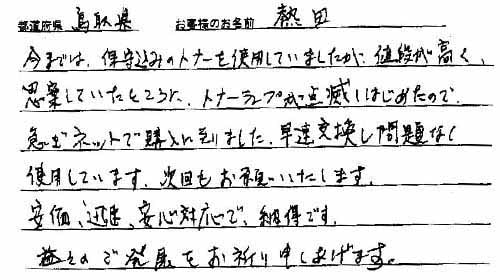 都道府県 鳥取県 お客様のお名前 熱田
今までは、保守込みのトナーを使用していましたが、値段が高く、
思案していたところに、トナーランプが点滅しはじめたので、
急ぎネットで購入に至りました。早速交換し問題なく
使用しています。次回もお願いいたします。
安価、迅速、安心対応で、納得です。
益々のご発展をお祈り申しあげます。